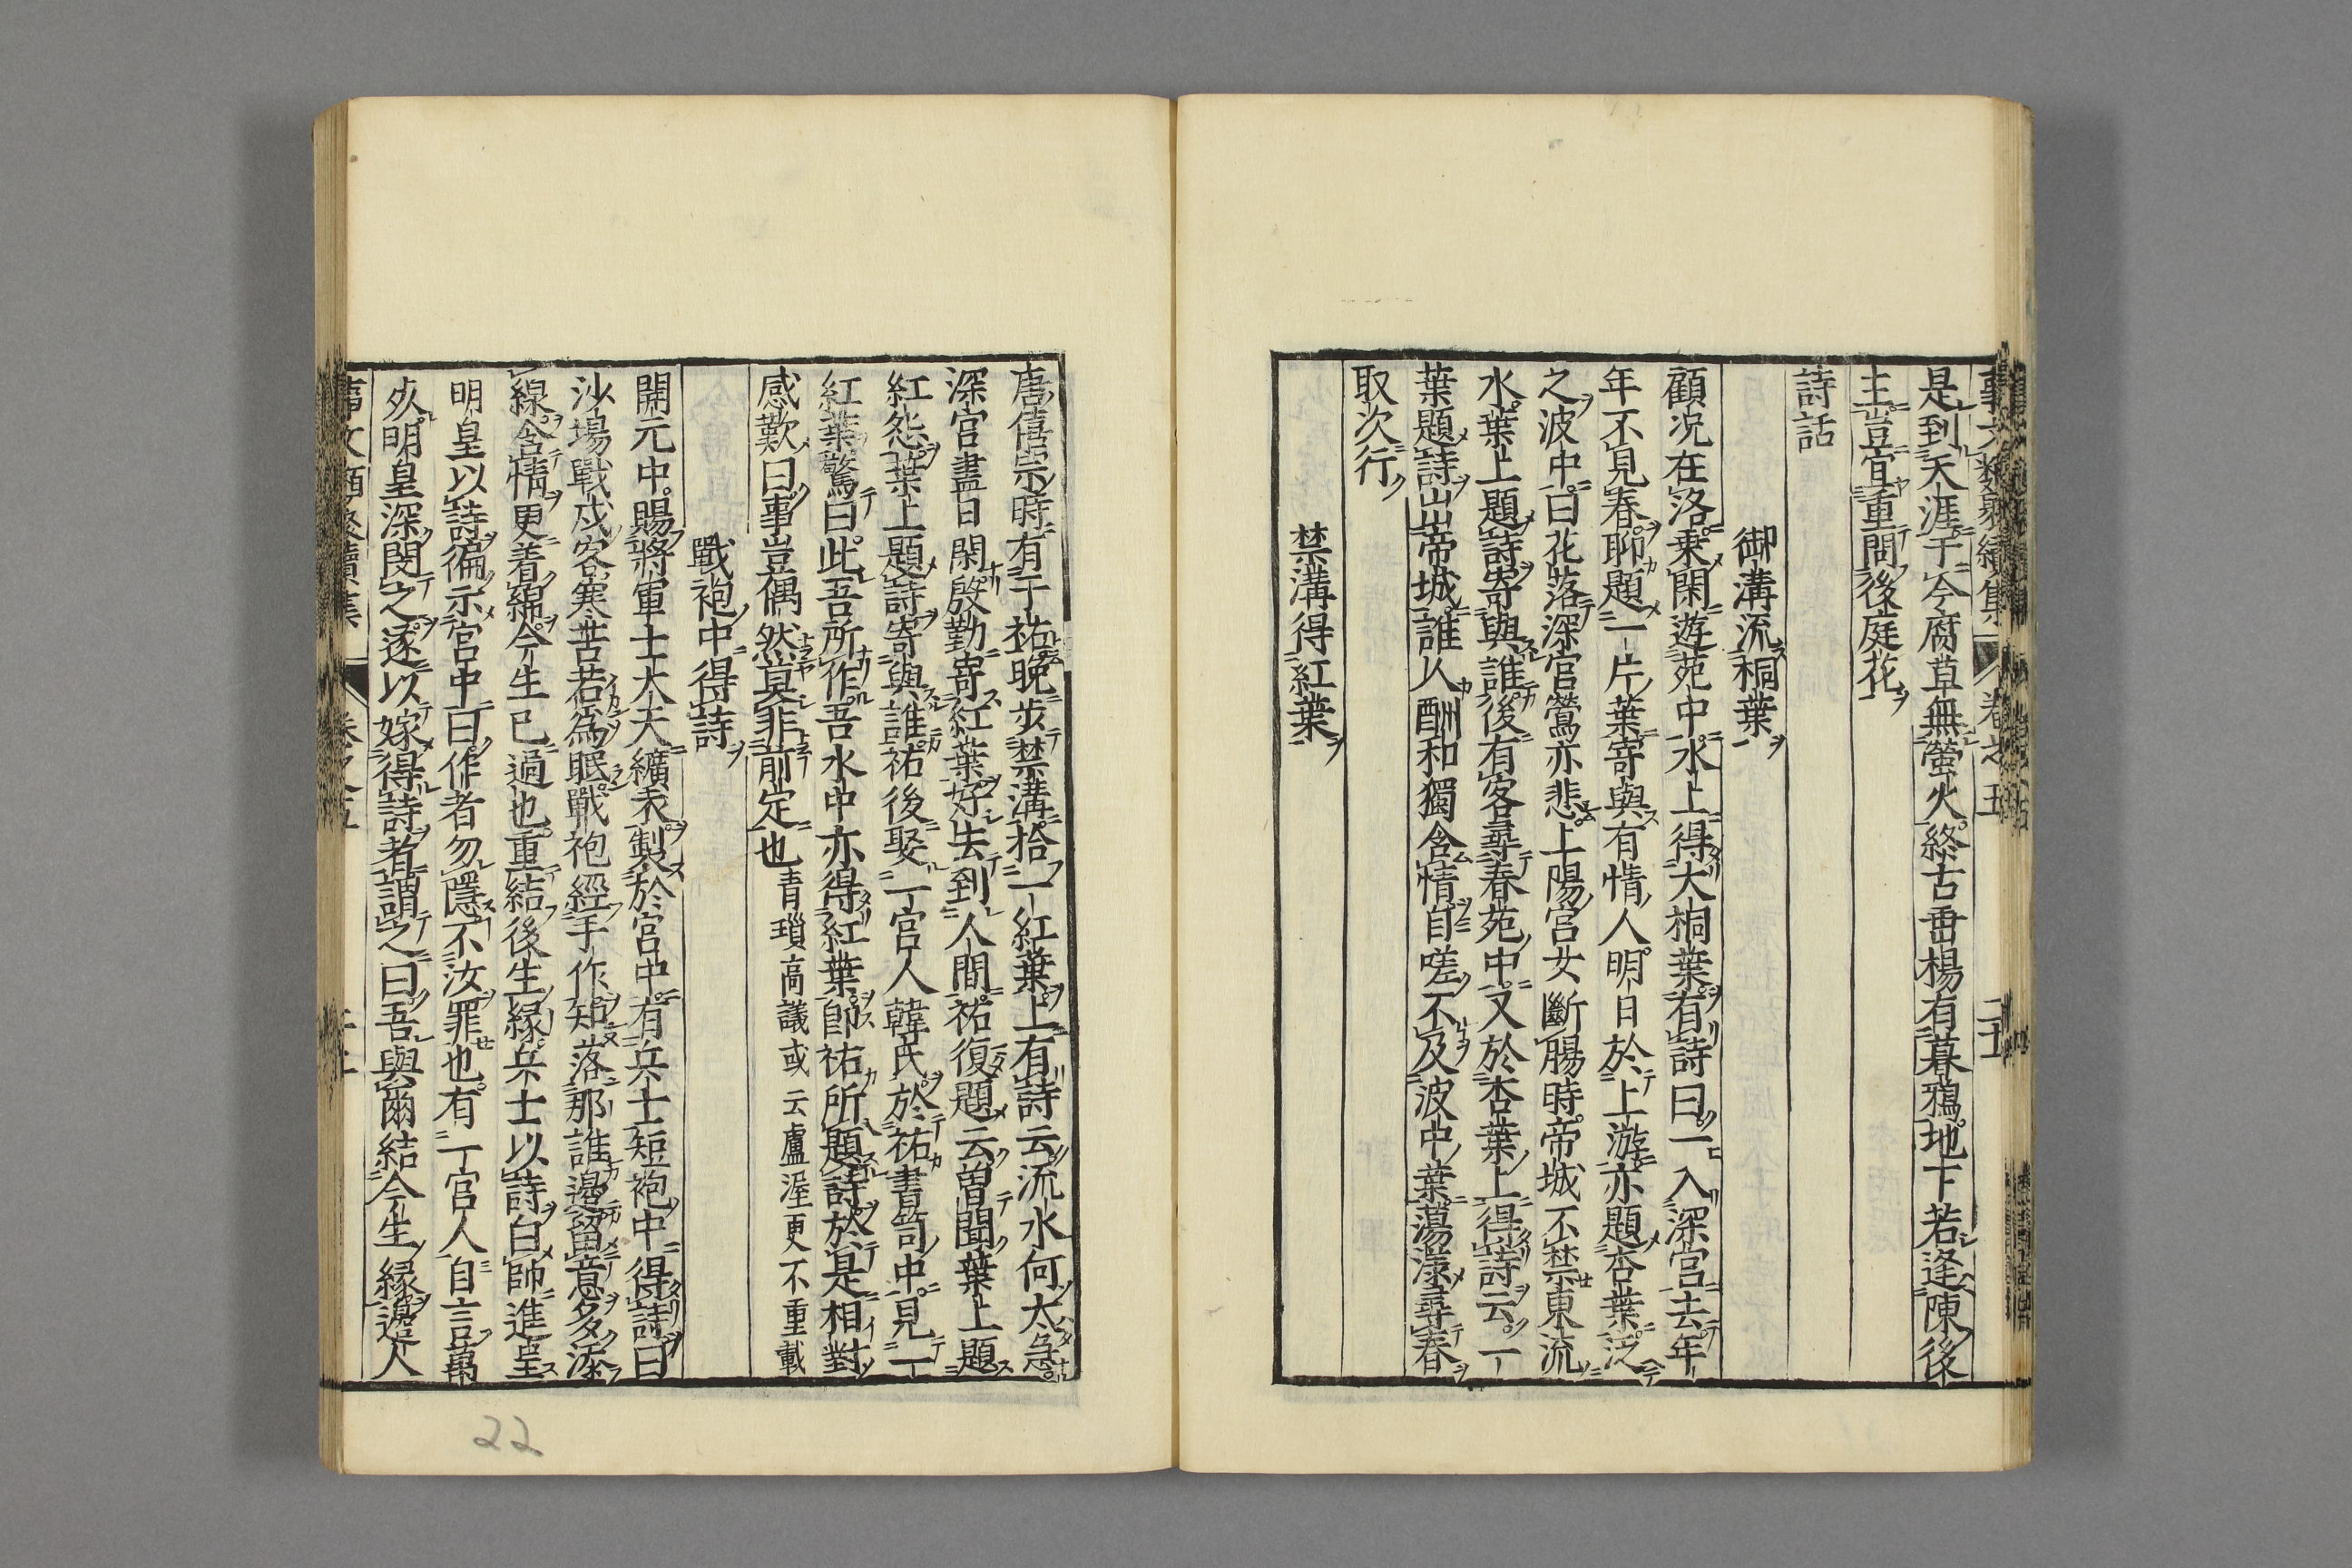 事文類聚續集　卷之五　二十
是到天涯于今腐草無螢火終古垂楊有暮鴉地下若逢陳後
主豈宜重問後庭花
詩話
御溝流桐葉
顧况在洛乗閑遊苑中水上得大桐葉有詩曰一入深宮去年
年不見春聊題一片葉寄與有情人明日於上游亦題杏葉泛
之波中曰花落深宮鶯亦悲上陽宮女斷腸時帝城不禁東流
水葉上題詩寄與誰後有客尋春苑中又於杏葉上得詩云一
葉題詩出帝城誰人酬和獨含情自嗟不及波中葉蕩漾尋春
取次行
禁溝得紅葉
唐僖宗時有于祐晚步禁溝拾一紅葉上有詩云流水何太急
深宮盡日閑殷勤寄紅葉好去到人間祐復題云曽聞葉上題
紅怨葉上題詩寄與誰祐後娶一宮人韓氏於祐書笥中見一
紅葉驚曰此吾所作吾水中亦得紅葉即祐所題詩於是相對
感歎曰事豈偶然莫非前定也青瑣高議或云盧渥更不重載
戰袍中得詩
開元中賜將軍士大夫纊衣製於宮中有兵士短袍中得詩曰
沙場戰戍客寒苦若為眠戰袍經手作知落那誰邊留意多添
線含情更着綿今生已過也重結後生緣兵士以詩白帥進呈
明皇以詩徧示宮中曰作者勿隱不汝罪也有一宮人自言萬
死明皇深閔之遂以嫁得詩者謂之曰吾與爾結今生緣邊人
事文類聚續集　卷之五
22